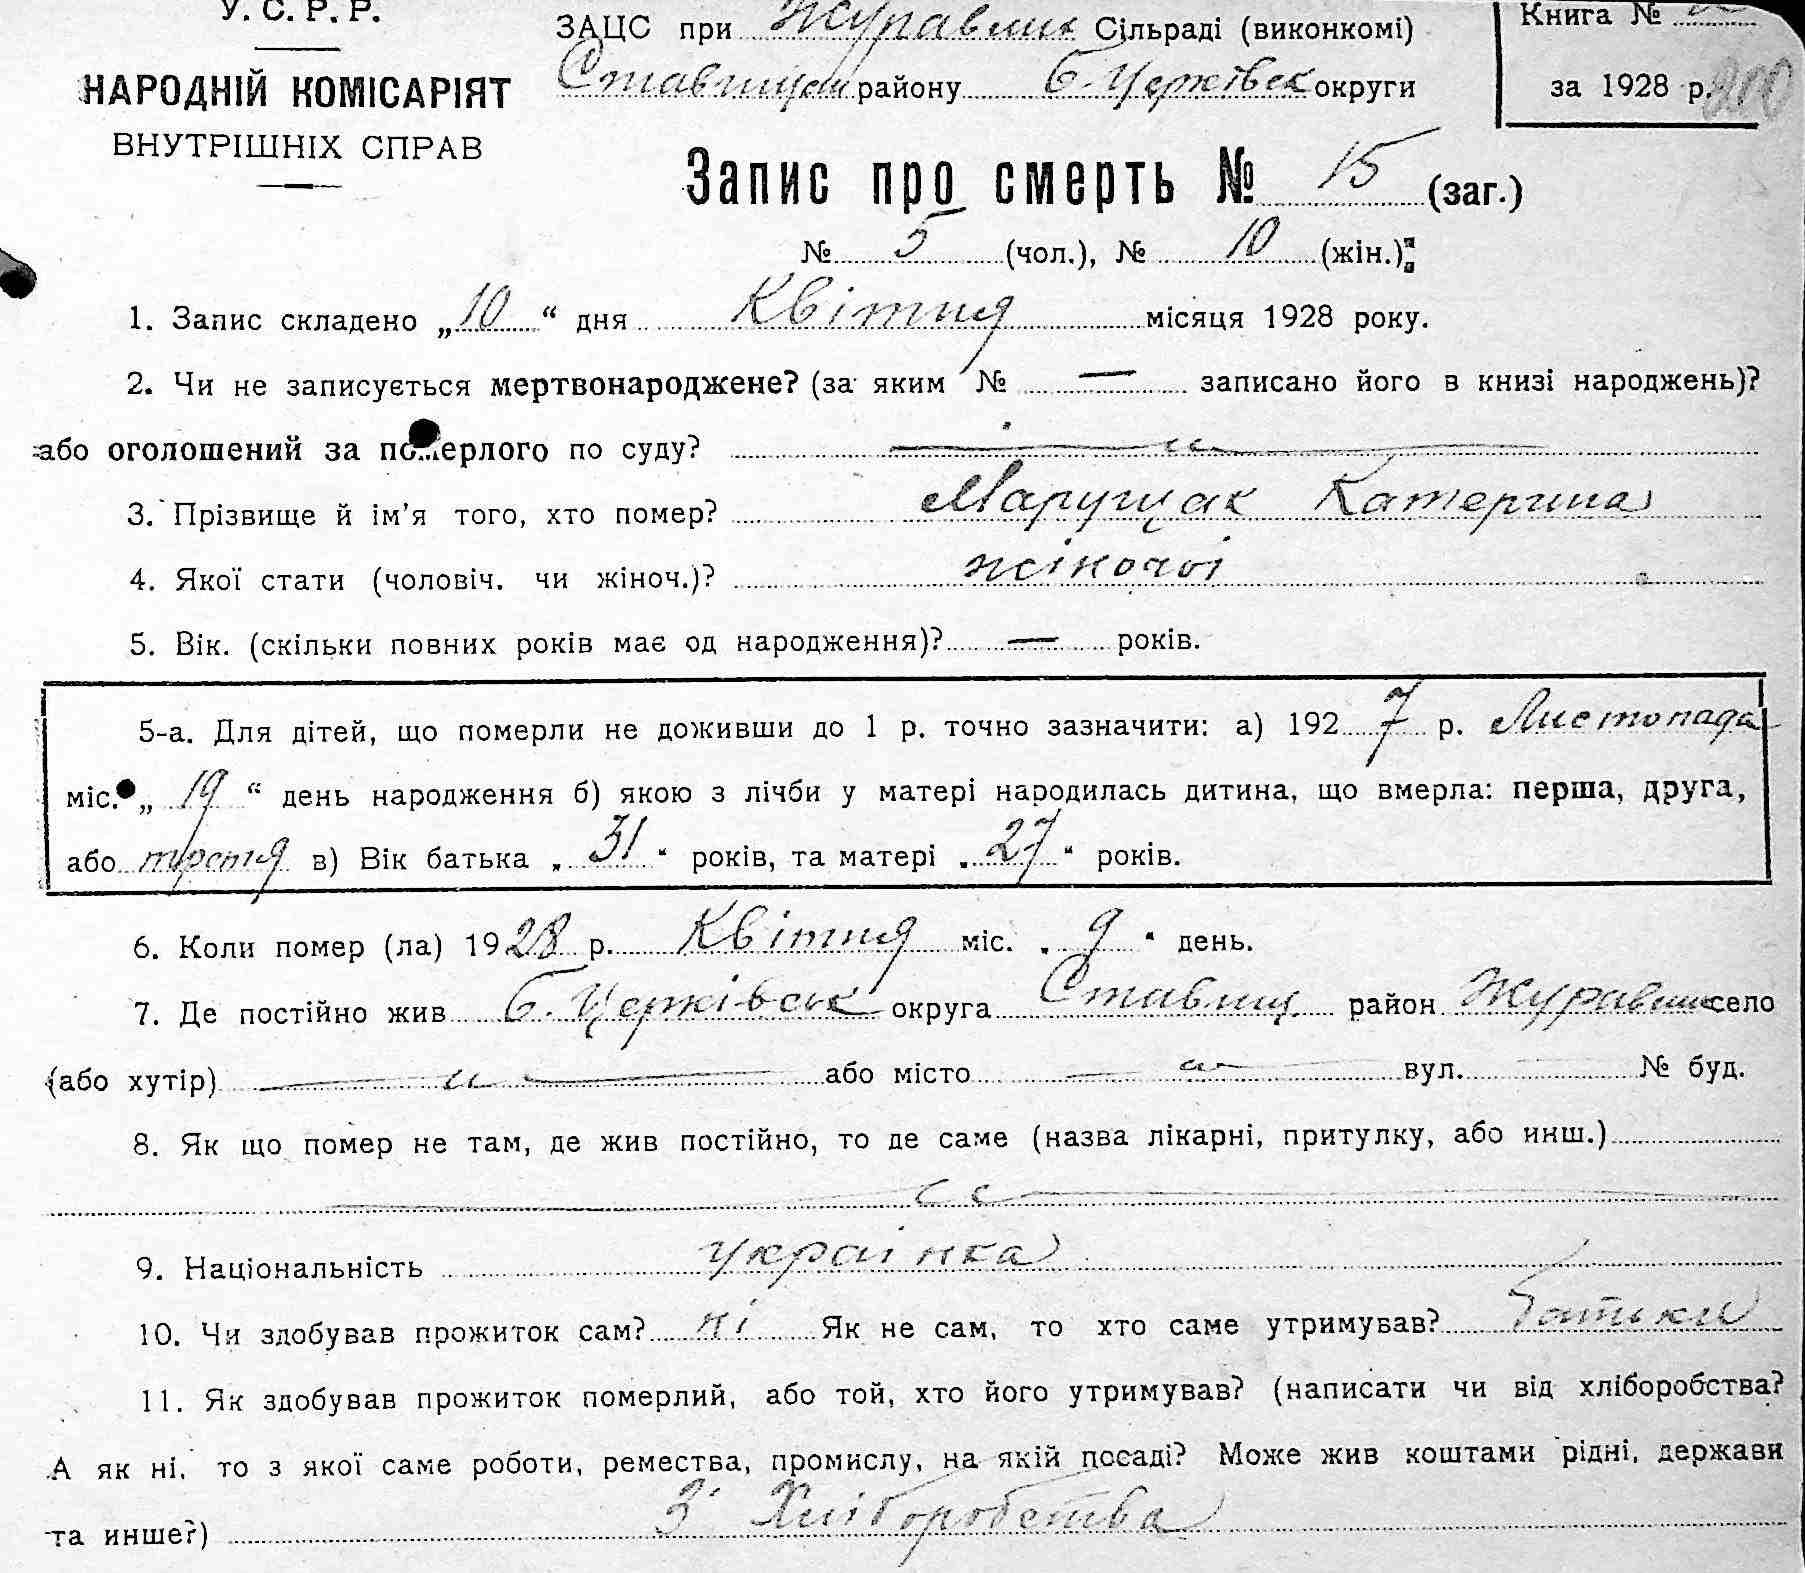 У. С. Р. Р.
НАРОДНІЙ КОМІСАРІЯТ
ВНУТРІШНІХ СПРАВ
ЗАЦС при Журавлих Сільраді (виконкомі)
Ставищан району Б. Церківськ округи
Книга №
за 1928 р. 200
Запис про смерть № 15 (заг.)
№ 5 (чол.), № 10 (жін.);
1. Запис складено „10“ дня Квітня місяця 1928 року.
2. Чи не записується мертвонароджене? (за яким № — записано його в книзі народжень)?
або оголошений за померлого по суду? — „ —
3. Прізвище й ім'я того, хто помер? Марущак Катерина
4. Якої стати (чоловіч. чи жіноч.)? жіночої
5. Вік. (скільки повних років має од народження)? — років.
5-а. Для дітей, що померли не доживши до 1 р. точно зазначити: а) 1927 р. Листопада
міс. „19“ день народження б) якою з лічби у матері народилась дитина, що вмерла: перша, друга,
або третя в) Вік батька „31“ років, та матері „27“ років.
6. Коли помер (ла) 1928 р. Квітня міс. „9“ день.
7. Де постійно жив Б. Церківськ округа Ставищ район село
(або хутір) — „ — або місто — „ — вул. — № буд.
8. Як що помер не там, де жив постійно, то де саме (назва лікарні, притулку, або инш.)
— „ —
9. Національність українка
10. Чи здобував прожиток сам? ні Як не сам, то хто саме утримував? батьки
11. Як здобував прожиток померлий, або той, хто його утримував? (написати чи від хліборобства?
А як ні, то з якої саме роботи, ремества, промислу, на якій посаді? Може жив коштами рідні, держави
та инше?) З Хліборобства